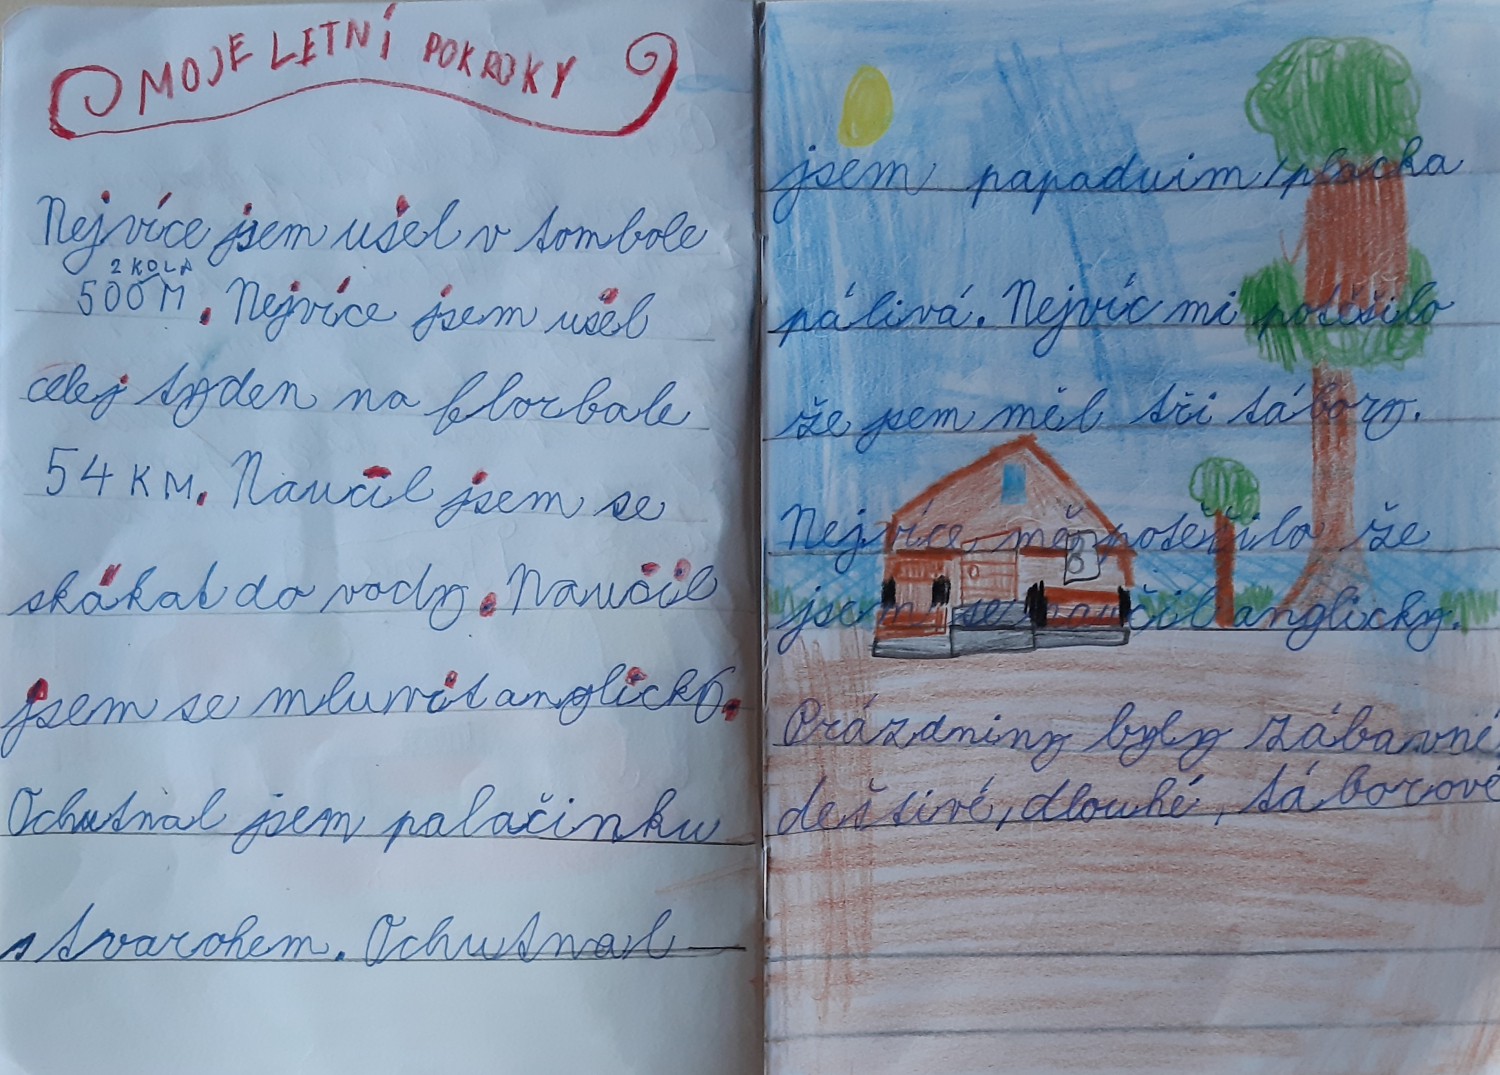 MOJE LETNÍ POKROKY
Nejvíce jsem ušel v tombole
2 KOLA
500 M. Nejvíce jsem ušel
celej tyden na florbale
54 KM. Naučil jsem se
skákat do vody. Naučil
jsem se mluvit anglicky.
Ochutnal jsem palačinku
s tvarohem. Ochutnal
jsem papaduim / placka
pálivá. Nejvíc mi potěšilo
že jsem měl tři tábory.
Nejvíce mě potešilo že
jsem se naučil anglicky.
Prázdniny byly zábavné,
deštivé, dlouhé, táborové